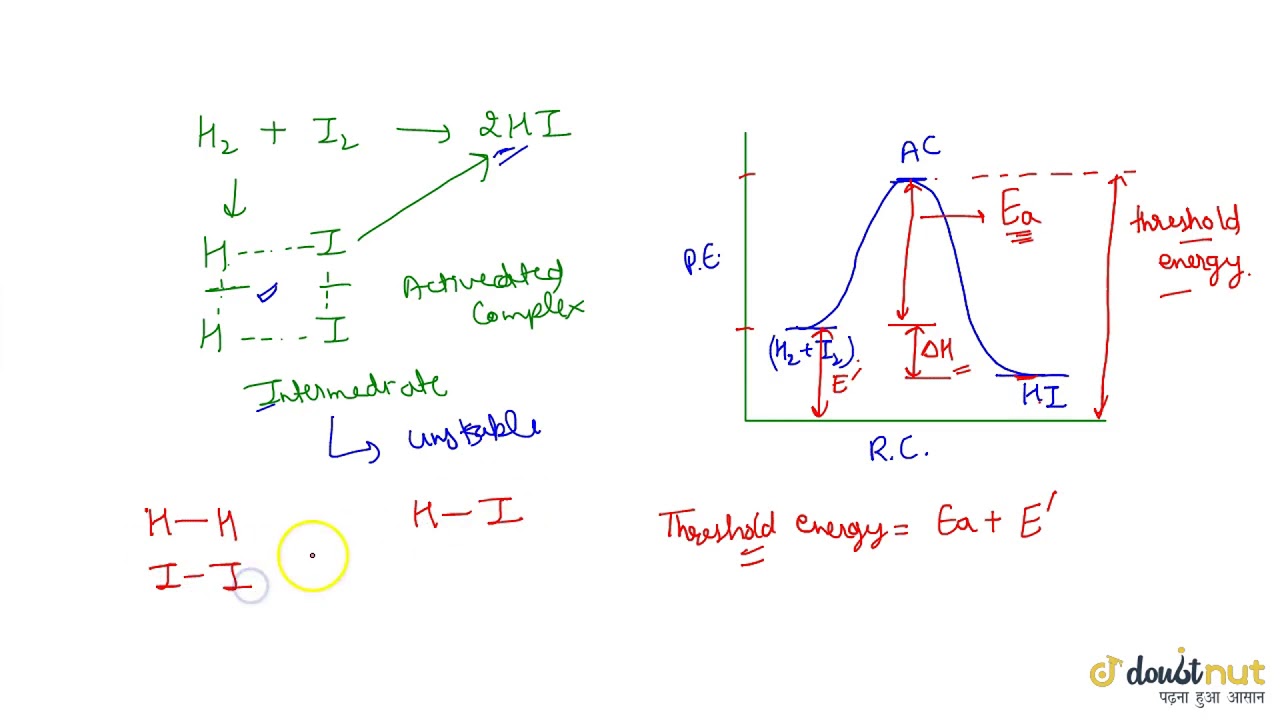 H₂ + I₂ → 2HI
H ----- I
H ---- I
Activated
Complex
Intermediate
unstable
H — H
I — I
H — I
AC
Ea
threshold
energy.
P.E.
(H₂ + I₂)
E'
ΔH
HI
R.C.
Threshold energy = Ea + E'
doubtnut
पढ़ना हुआ आसान